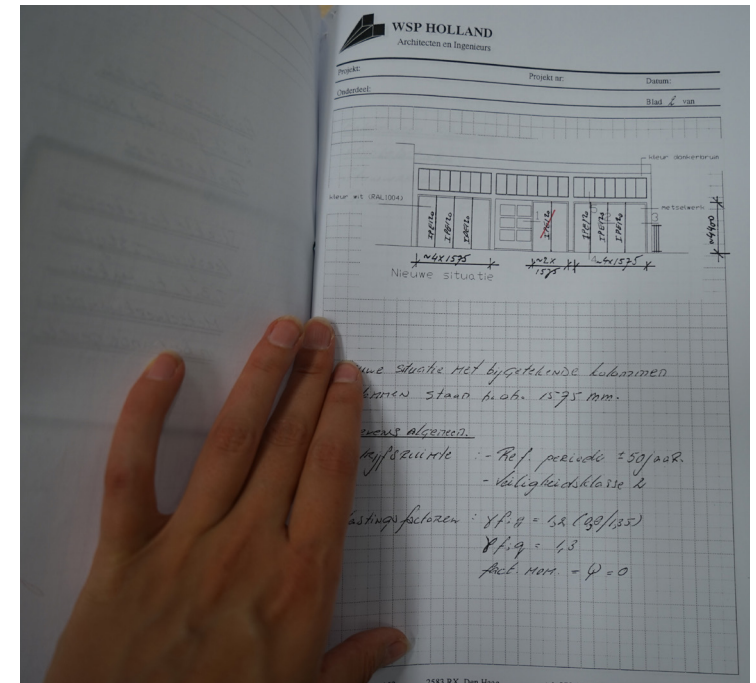 WSP HOLLAND
Architecten en Ingenieurs
Projekt:
Projekt nr:
Datum:
Onderdeel:
Blad 2 van
kleur donkerbruin
kleur wit (RAL1004)
metselwerk
IPE120 IPE120 IPE120 1 IPE120 IPE120 IPE120 IPE120 3
~4x1575
~2x
1575
~4x1575
~4400
Nieuwe situatie
uwe situatie met bijgetekende kolommen
ommen staan h.o.h. 1575 mm.
evens algemeen.
ijfsruimte : - Ref. periode ± 50 jaar.
- Veiligheidsklasse 2
astingsfactoren : γf;g = 1,2 (0,9/1,35)
γf;q = 1,3
fact. mom. = Ψ = 0
2583 RX Den Haag